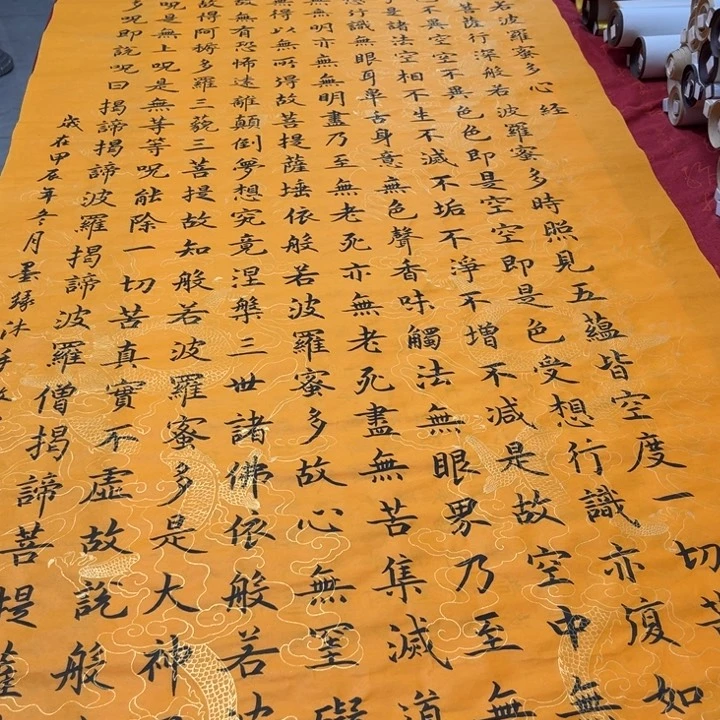 若波羅蜜多心經
菩薩行深般若波羅蜜多時照見五蘊皆空度一切苦
不異空空不異色色即是空空即是色受想行識亦復如
是諸法空相不生不滅不垢不淨不增不減是故空中無
行識無眼耳鼻舌身意無色聲香味觸法無眼界乃至無
無無明亦無無明盡乃至無老死亦無老死盡無苦集滅道
無得以無所得故菩提薩埵依般若波羅蜜多故心無罣礙
故無有恐怖遠離顛倒夢想究竟涅槃三世諸佛依般若波
故得阿耨多羅三藐三菩提故知般若波羅蜜多是大神
呪是無上呪是無等等呪能除一切苦真實不虛故說般
多呪即說呪曰揭諦揭諦波羅揭諦波羅僧揭諦菩提薩
歲在甲辰年冬月墨緣沐手